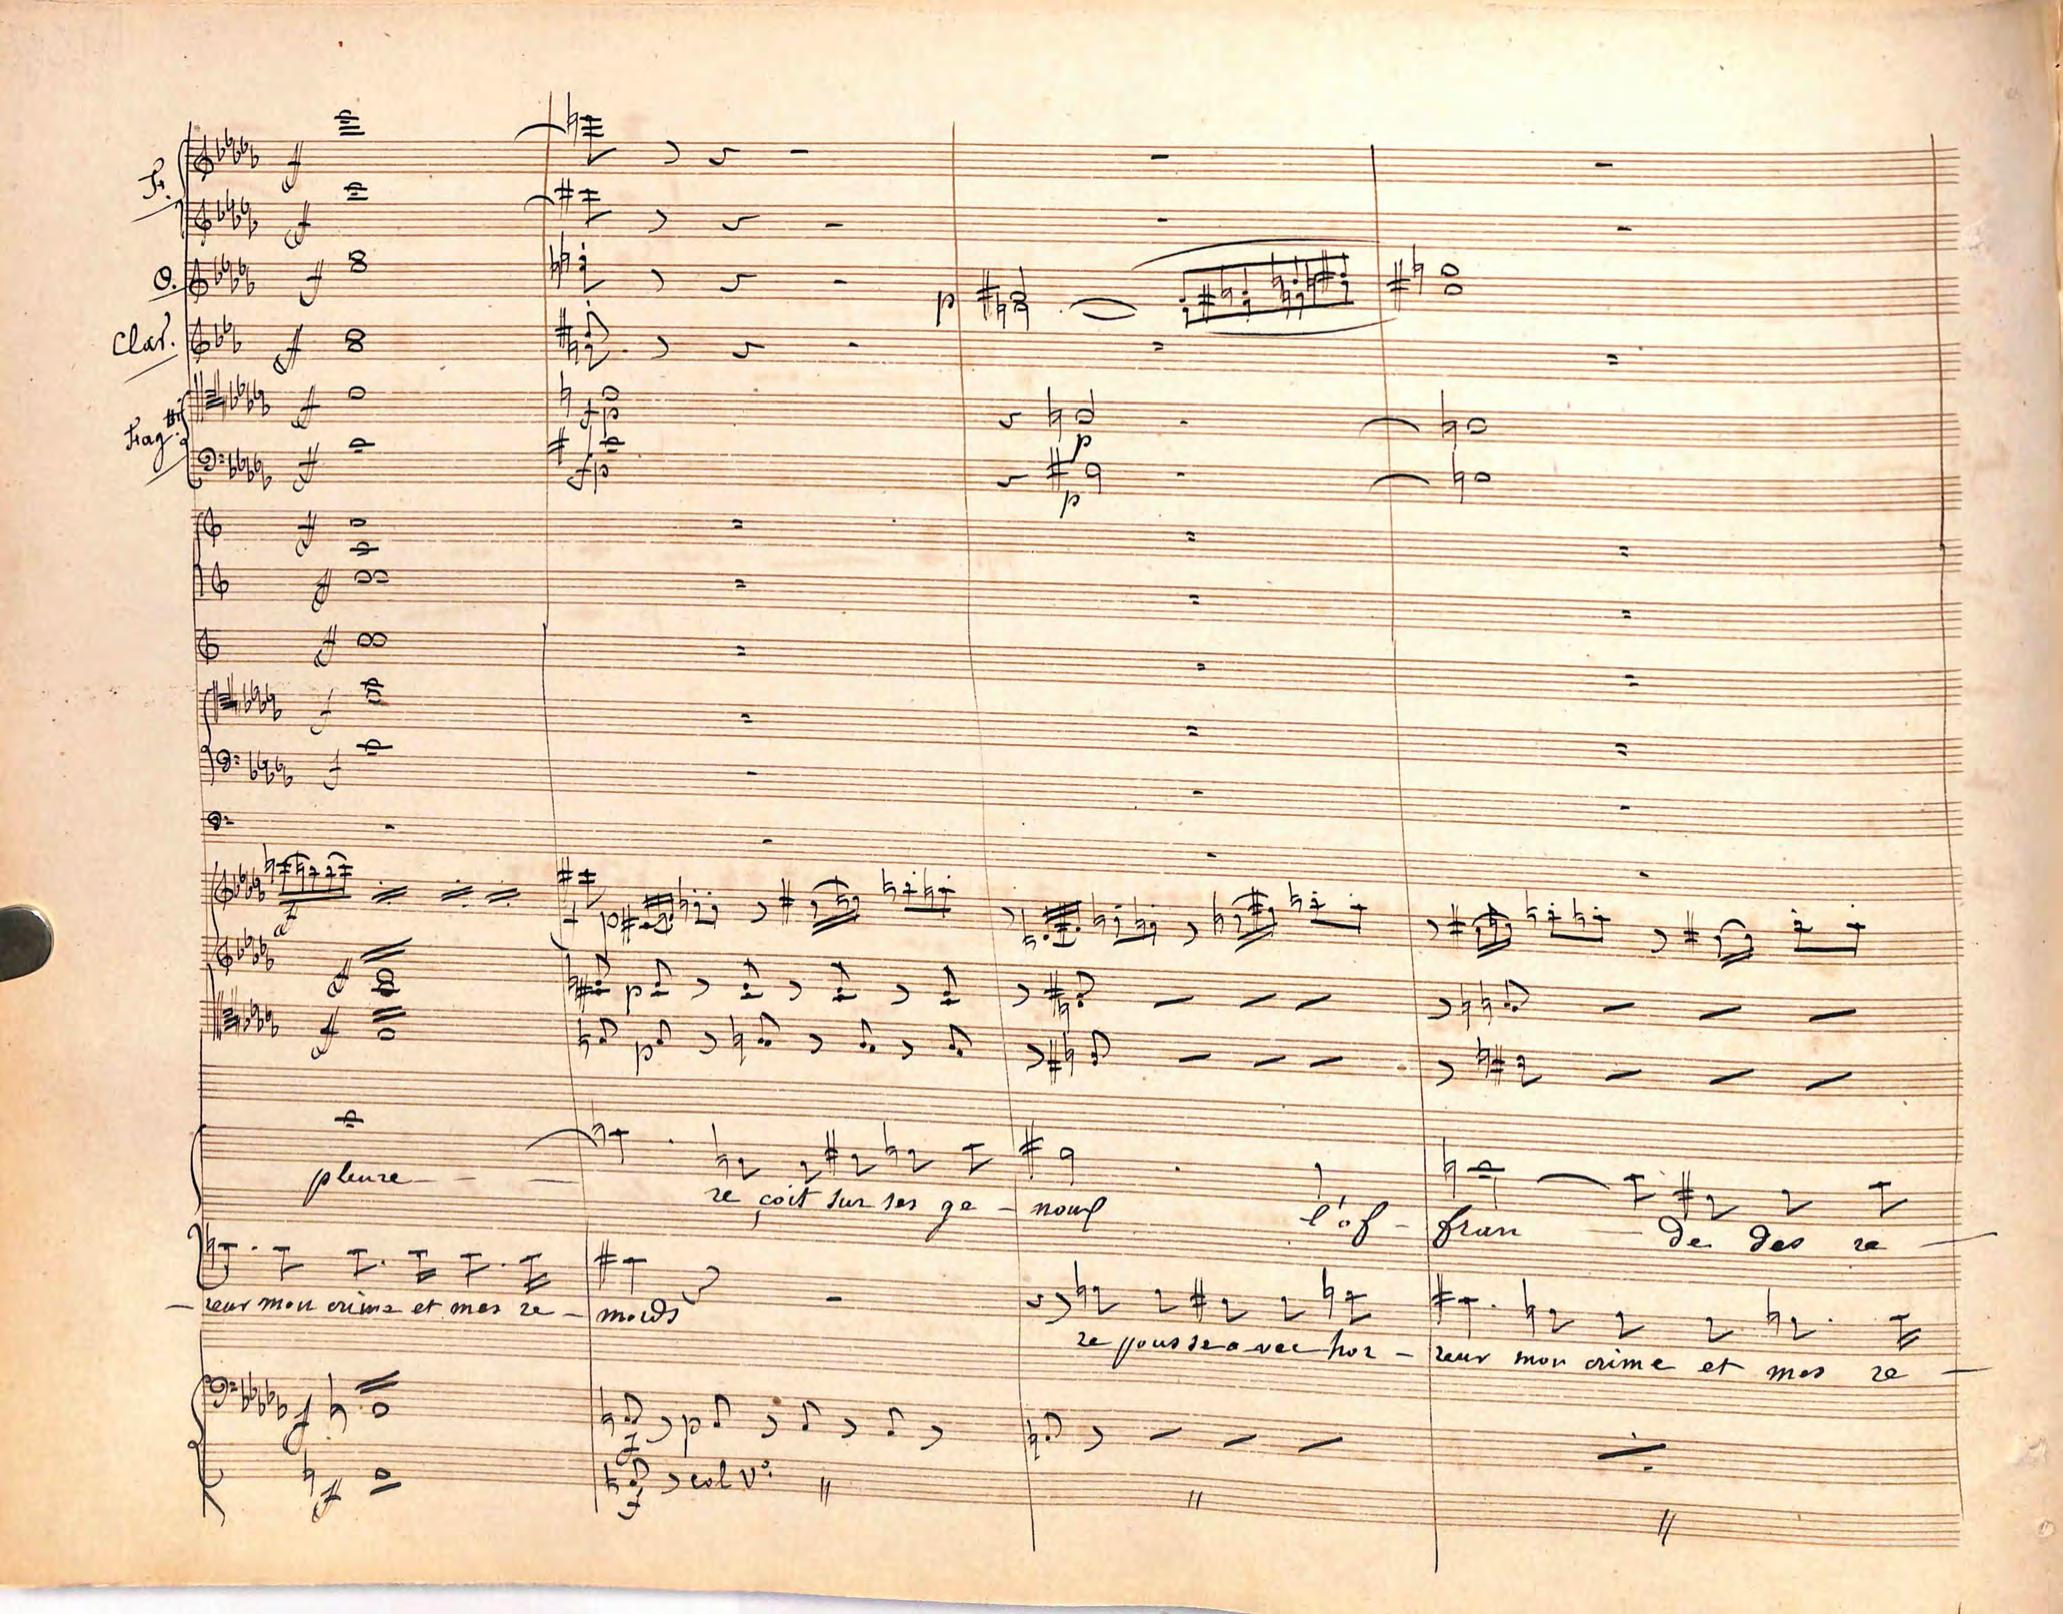 F.
O.
Clar.
Fag.tti
f
f
f
f
f fp
f fp
p
p
p
f
f
f
f
f
f f p
f p
f p
pleure - - - re çoit sur ses ge - noux l'of - fran - de des re -
- reur mon crime et mes re - mords
re pousse avec hor - reur mon crime et mes re -
f f p
f f col Vo. // // //